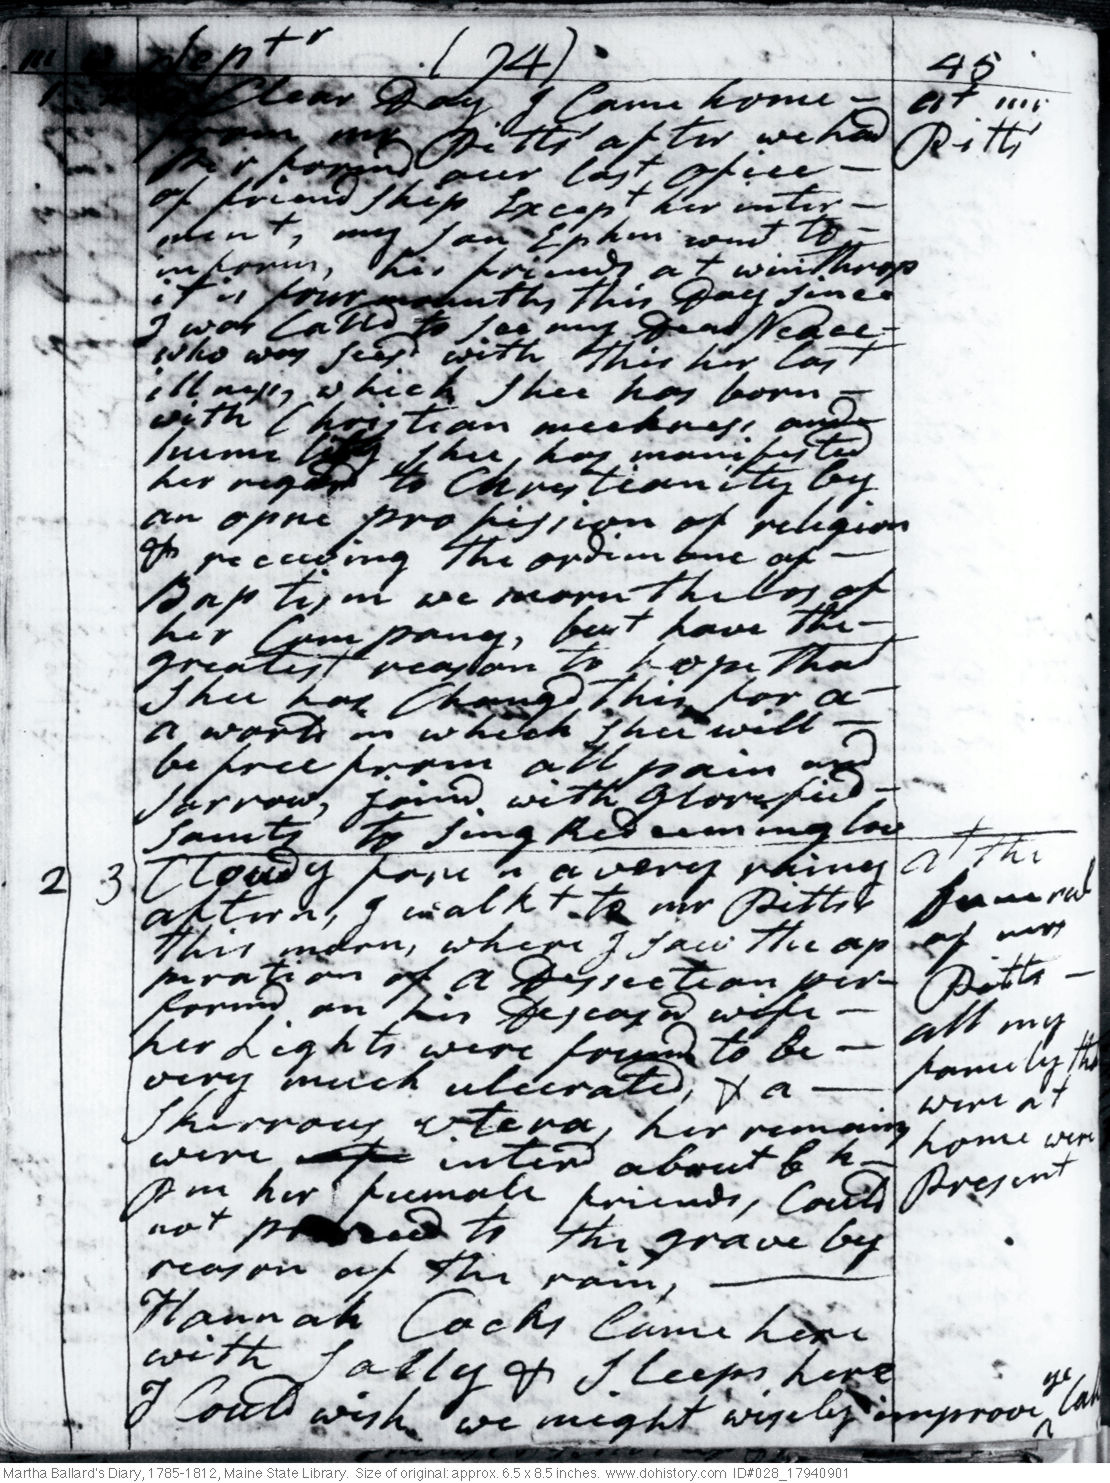 m w Septr (74) 45
1 2 Clear Day I Came home - at mr
from mr Pitts' after we had Pitts'
perform'd our last ofice -
of friendship Except her inter -
ment, my son Ephm went to -
inform, his friends at winthrop
it is four mounths this Day since
I was Calld to see my Dear Neace -
who was siesd with this her last
illness, which shee has born -
with Christian meekness and
humility shee, has manifested
her regard to Christianity by
an opne profission of religion
& receeving the ordimone of -
Baptism we morn the los of
her Company, but have the -
greatest reason to hope that
shee has Changd this for a -
a world in which shee will -
be free from all pain and
sorrow, joind with Glorefied -
saints to sing Redeeming lov
2 3 Cloudy forn n a very rainy at the
aftern, I walkt to mr Pitts's funeral
this morn, where I saw the op of mrs
peration of a Desection per- Pitts -
formd on his Desceasd wife - all my
her Lights were found to be - famely that
very much ulcerated, & a - were at
skerrous utera, her remains home were
were interd about 6 h - Present
pm her feemale friends, Could
not proceed to the grave by
reason of the rain, -
Hannah Cocks Came here
with Sally & sleeps here
I Could wish we might wisely improve ye
Martha Ballard's Diary, 1785-1812, Maine State Library. Size of original: approx. 6.5 x 8.5 inches. www.dohistory.com ID#028_17940901